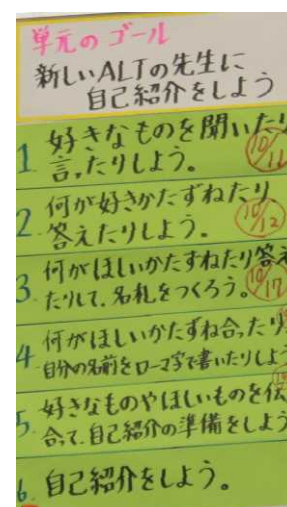 単元のゴール
新しいALTの先生に
自己紹介をしよう
1 好きなものを聞いたり
言ったりしよう。
10/11
2. 何が好きかたずねたり
答えたりしよう。
10/12
3. 何がほしいかたずねたり答え
たりして、名札をつくろう。
10/17
4 何がほしいかたずね合ったり
自分の名前をローマ字で書いたりしよ
5. 好きなものやほしいものを伝
合って、自己紹介の準備をしよう
6. 自己紹介をしよう。